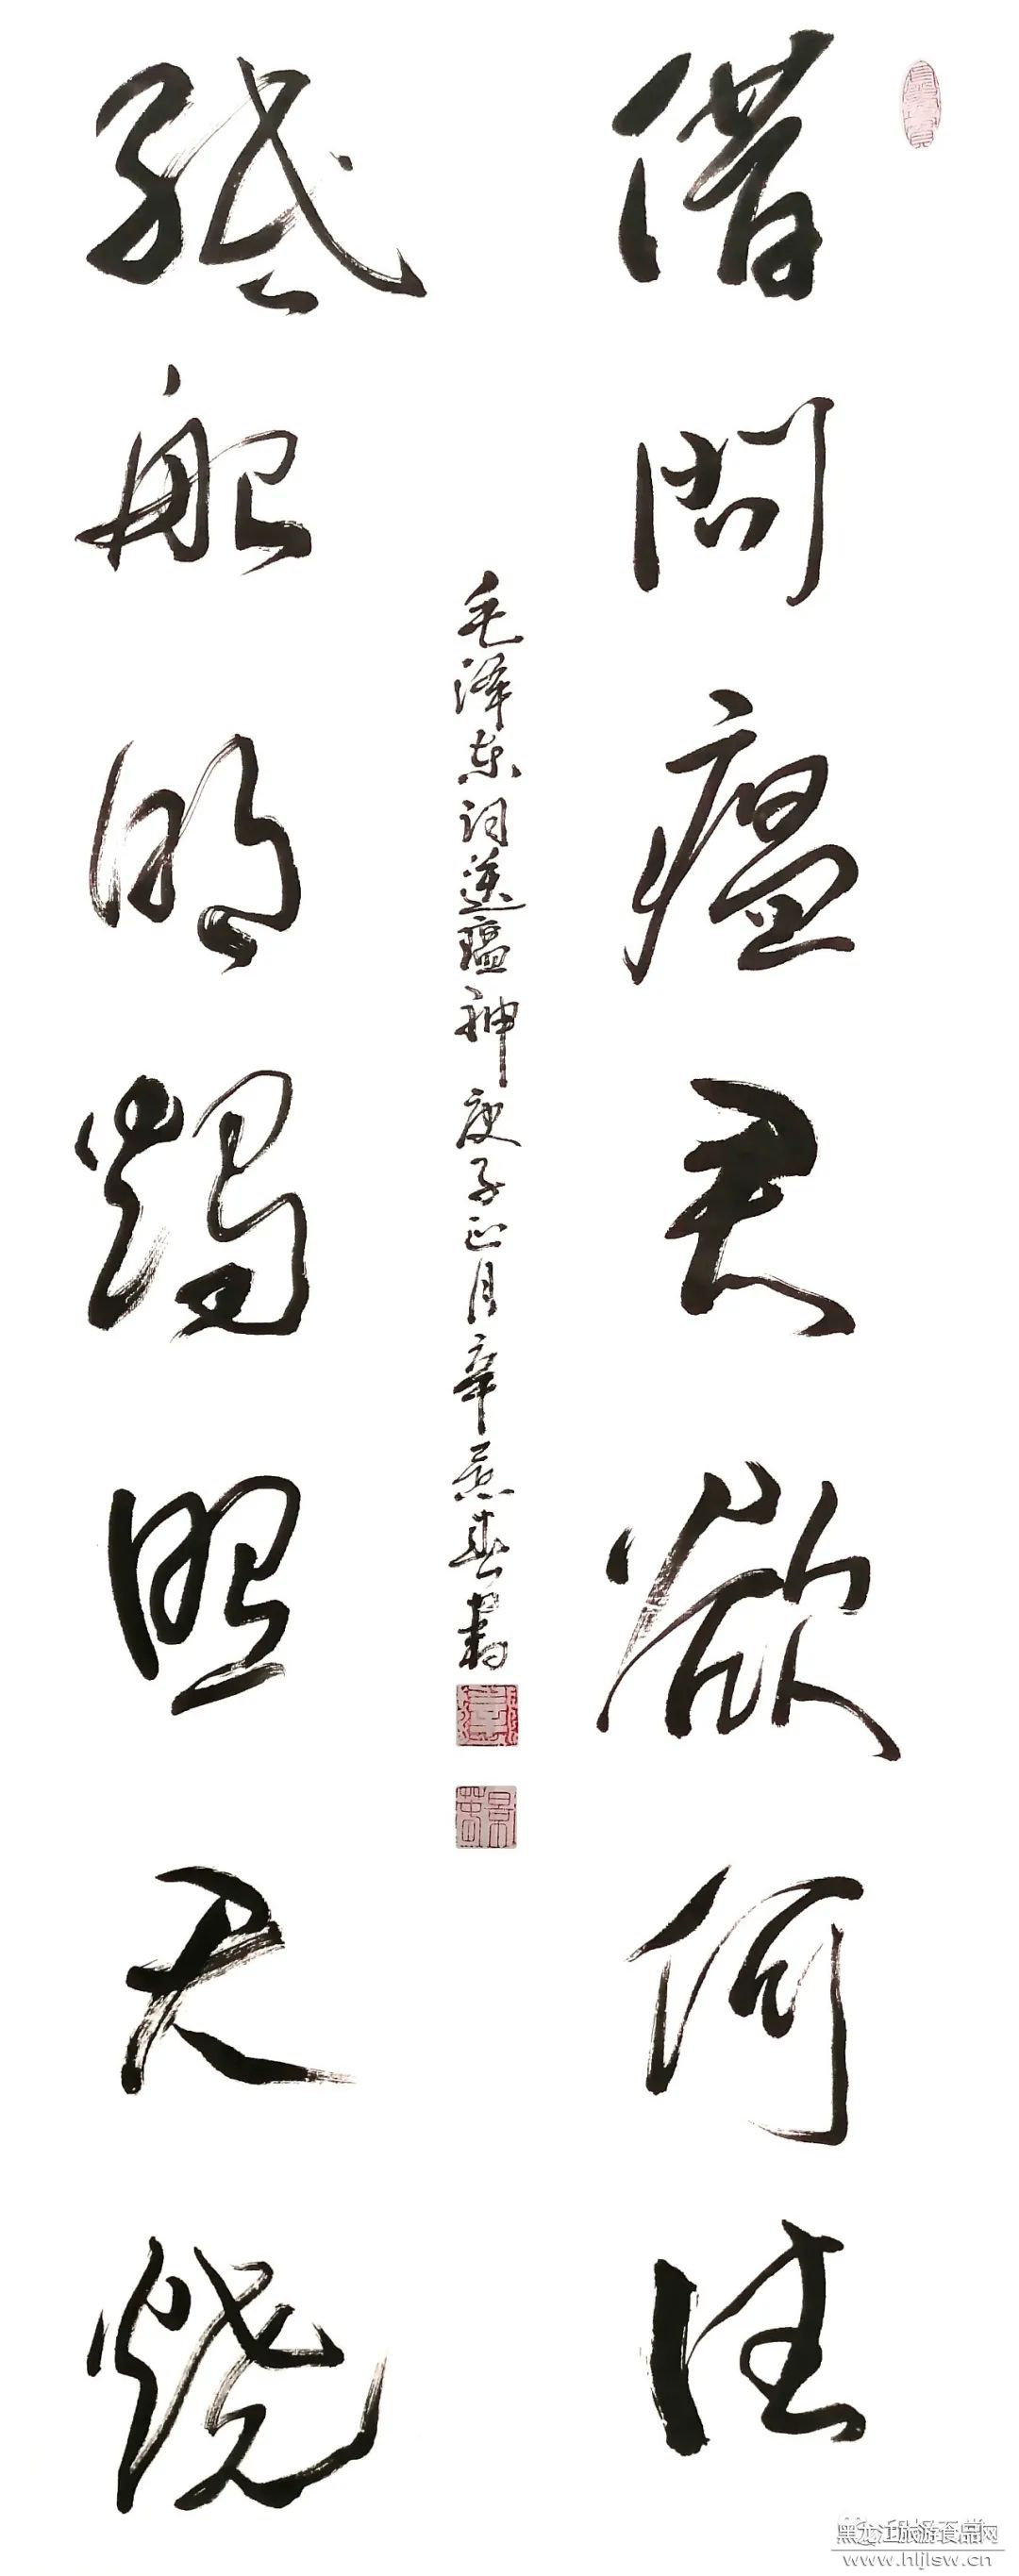 借问瘟君欲何往
纸船明烛照天烧
毛泽东词送瘟神 庚子正月辛景春书
黑龙江旅游食品网
www.hljlsw.cn